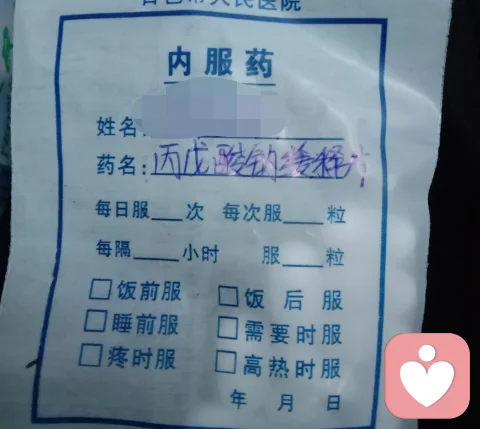 百色市人民医院
内服药
姓名:
药名: 丙戊酸钠缓释片
每日服___次 每次服___粒
每隔____小时 服____粒
□饭前服 □饭后服
□睡前服 □需要时服
□疼时服 □高热时服
年 月 日